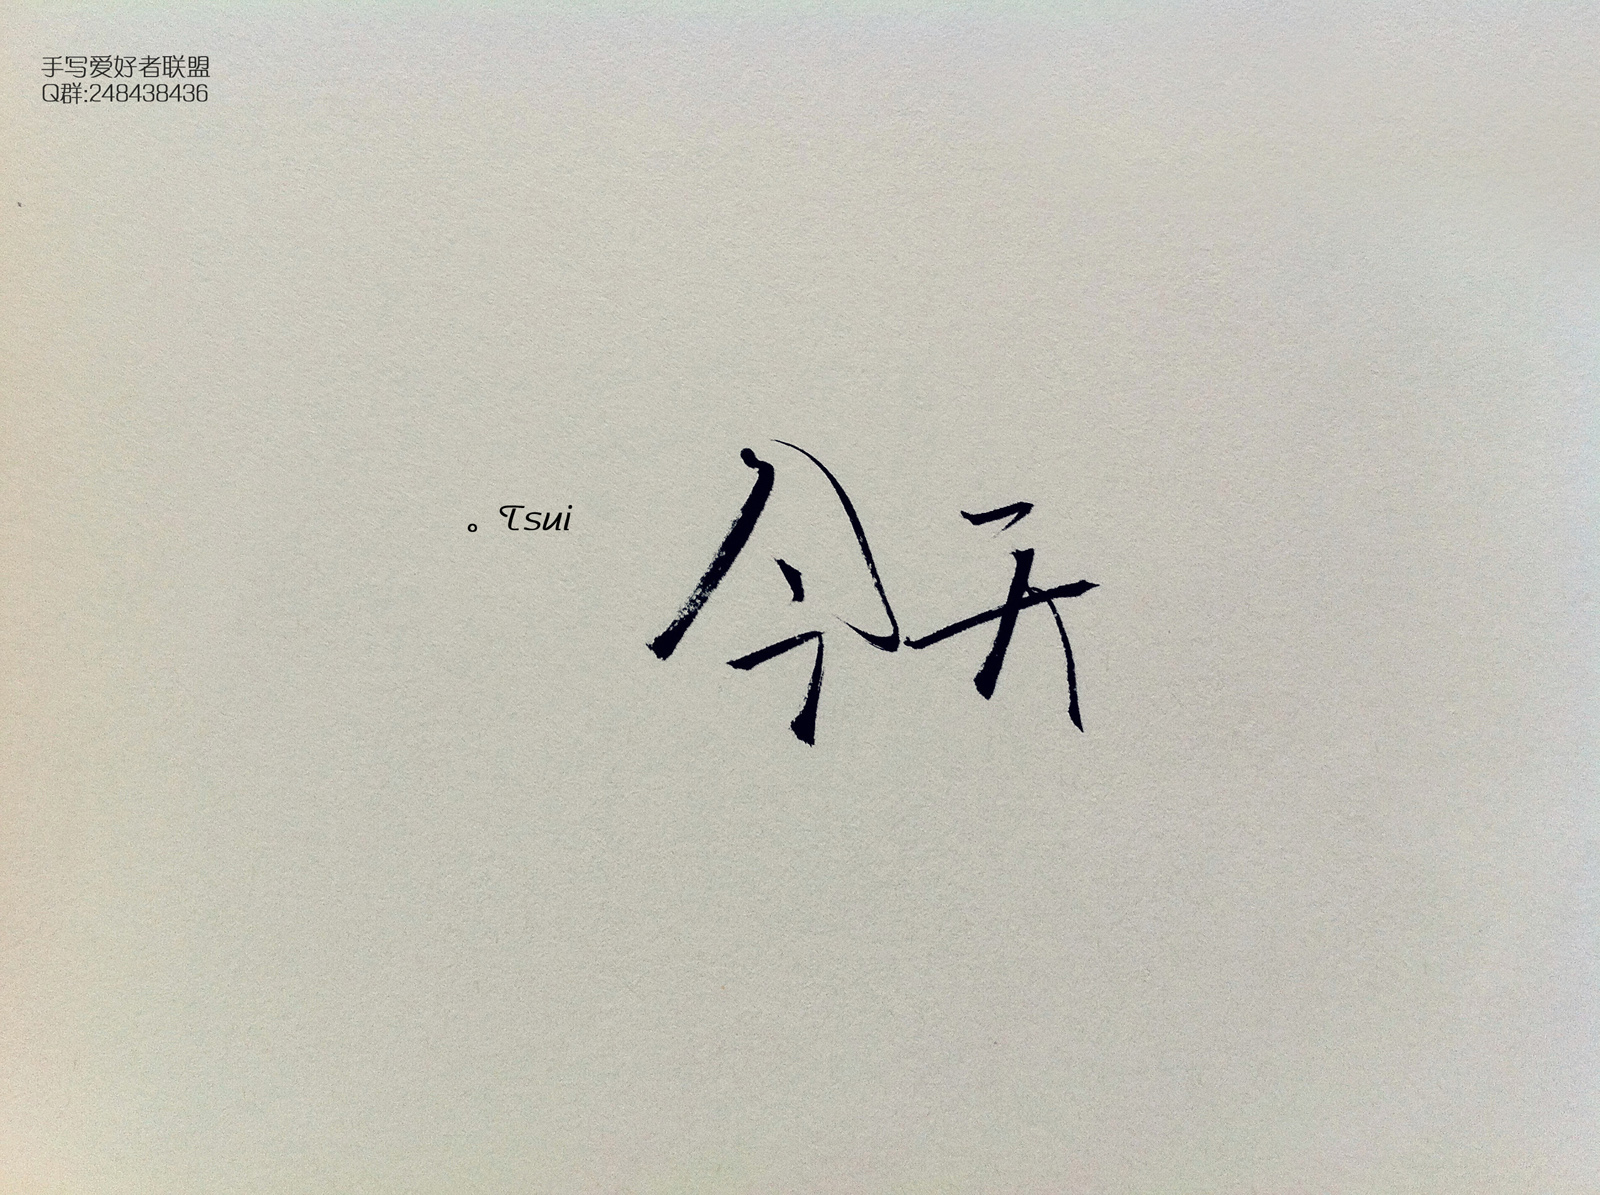 手写爱好者联盟
Q群:248438436
。Tsui
今天